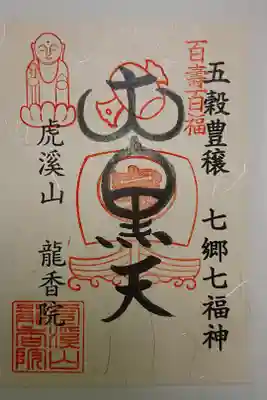 五穀豊穣 七郷七福神
百壽百福
大黒天
虎溪山 龍香院